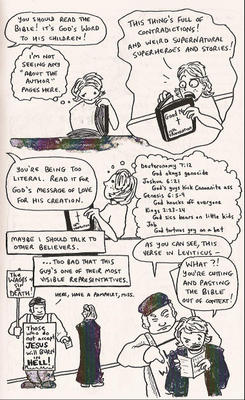 YOU SHOULD READ THE
BIBLE! IT'S GOD'S WORD
TO HIS CHILDREN!
I'M NOT
SEEING ANY
"ABOUT THE
AUTHOR"
PAGES HERE.
THIS THING'S FULL OF
CONTRADICTIONS!
AND WEIRD SUPERNATURAL
SUPERHEROES AND STORIES!
Good News
YOU'RE BEING TOO
LITERAL. READ IT FOR
GOD'S MESSAGE OF LOVE
FOR HIS CREATION.
Deuteronomy 7:12
God okays genocide
Joshua 6:21
God's guys kick Canaanite ass
Genesis 6:5-9
God knocks off everyone
Kings 2:23-24
God sics bears on little kids
Job
God tortures guy on a bet
MAYBE I SHOULD TALK TO
OTHER BELIEVERS.
...TOO BAD THAT THIS
GUY'S ONE OF THEIR MOST
VISIBLE REPRESENTATIVES.
HERE, HAVE A PAMPHLET, MISS.
The WAGES
of SIN is
DEATH!
Those
who do
not accept
JESUS
will BURN
in
HELL!
AS YOU CAN SEE, THIS
VERSE IN LEVITICUS –
WHAT?!
YOU'RE CUTTING
AND PASTING
THE BIBLE
OUT OF CONTEXT!